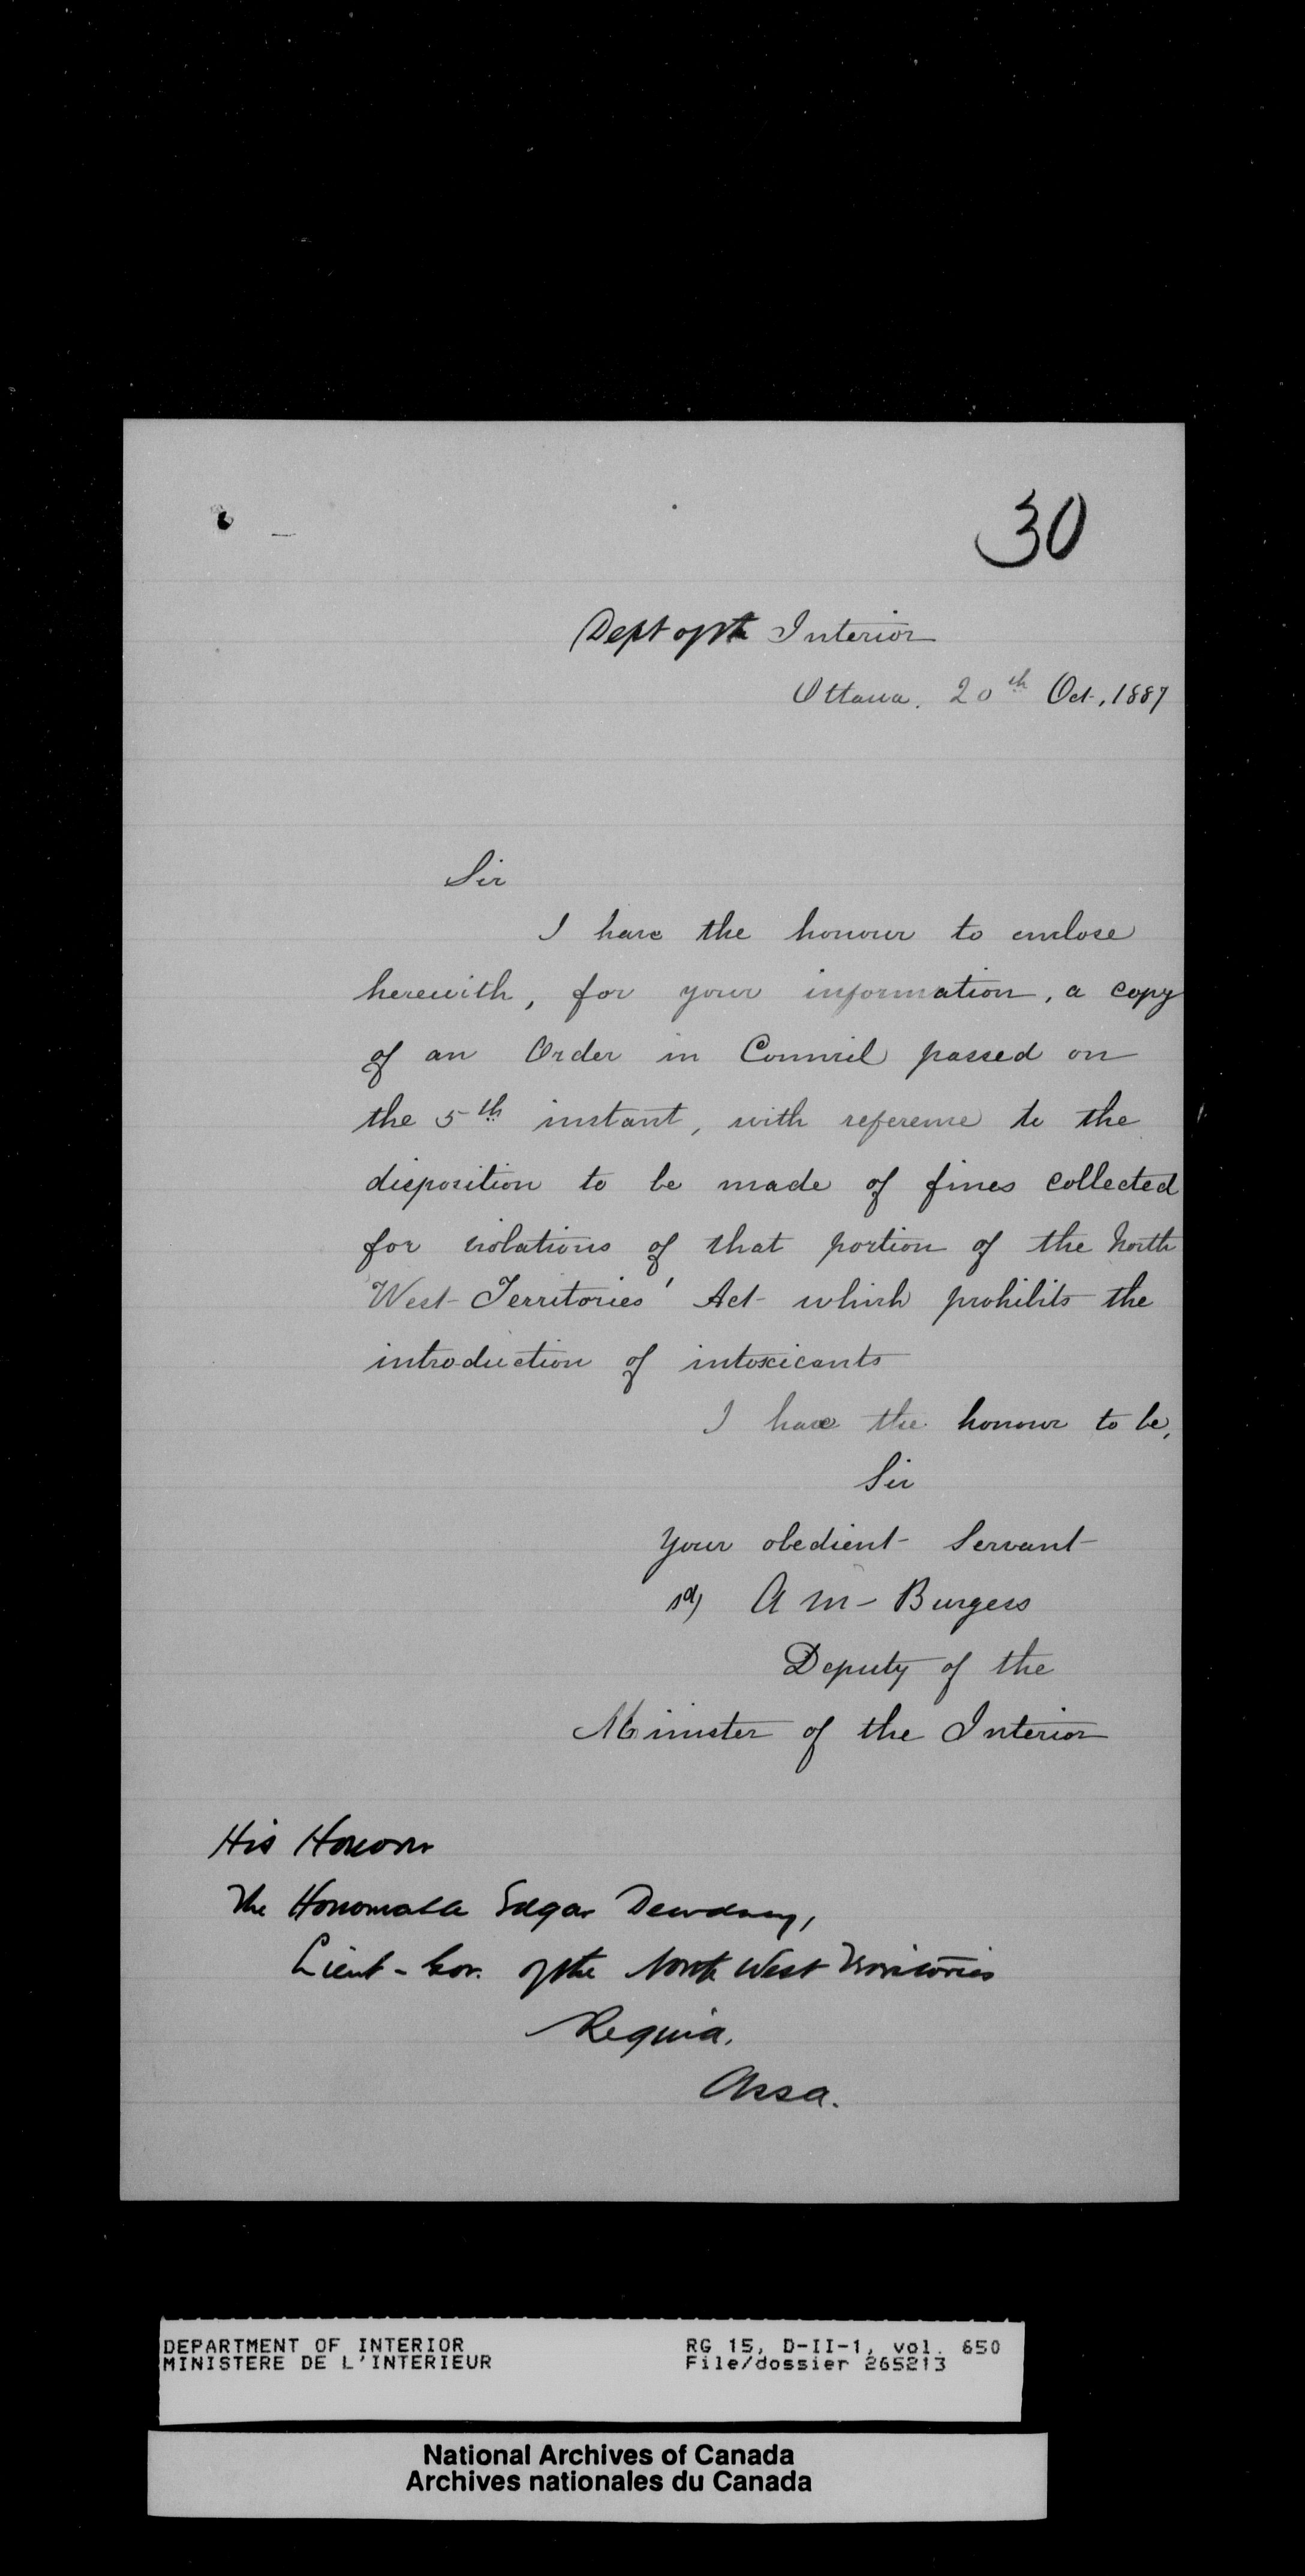 30
Dept of the Interior
Ottawa. 20th Oct., 1887
Sir
I have the honour to enclose
herewith, for your information, a copy
of an Order in Council passed on
the 5th instant, with reference to the
disposition to be made of fines collected
for violations of that portion of the North
West Territories' Act which prohibits the
introduction of intoxicants
I have the honour to be,
Sir
Your obedient Servant
sd) A M Burgess
Deputy of the
Minister of the Interior
His Honour
The Honourable Edgar Dewdney,
Lieut-Gov. of the North West Territories
Regina,
Assa.
DEPARTMENT OF INTERIOR RG 15, D-II-1, vol. 650
MINISTERE DE L'INTERIEUR File/dossier 265213
National Archives of Canada
Archives nationales du Canada